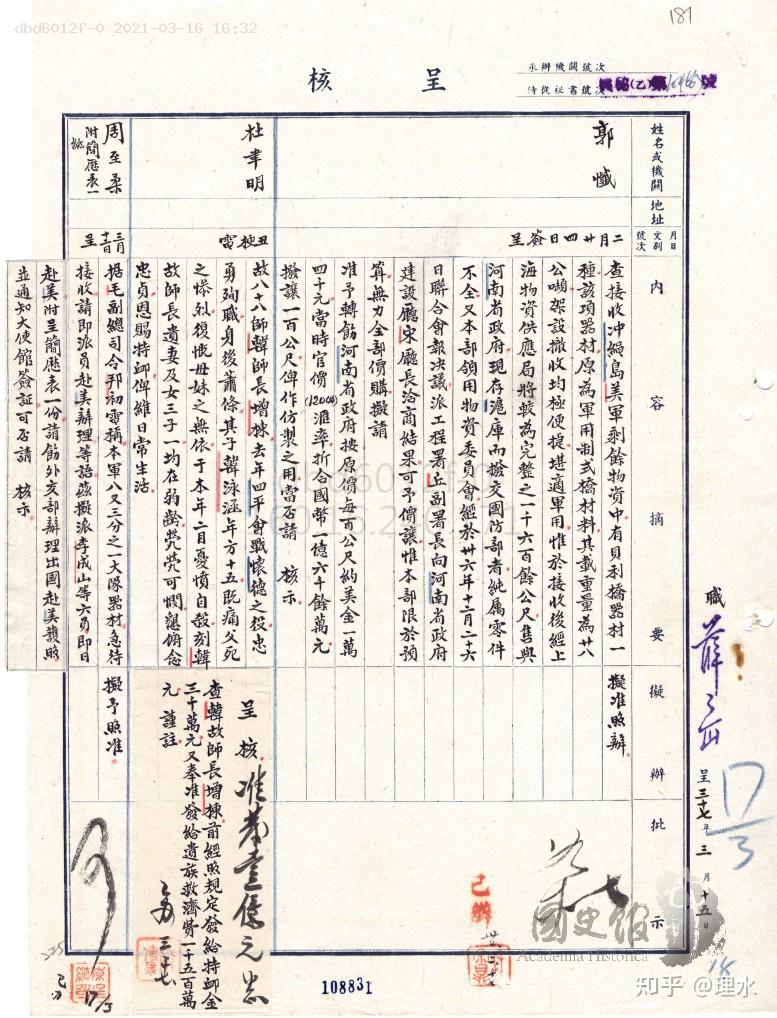 dbd6012f-0 2021-03-16 16:32
181
呈核
承辦機關號次
侍從祕書號次
姓名或機關
地址
月日
文別
號次
內容摘要
擬辦
批示
郭懺
二月廿四日簽呈
查接收冲繩島美軍剩餘物資中有貝利橋器材一
種該項器材原為軍用制式橋材料其載重量為廿八
公噸架設撤收均極便捷堪適軍用惟於接收後經上
海物資供應局將較為完整之一千六百餘公尺售與
河南省政府現存滬庫而撥交國防部者純属零件
不全又本部領用物資委員會經於卅六年十二月二十六
日聯合會報决議派工程署丘副署長向河南省政府
建設廳宋廳長洽商結果可予價讓惟本部限於預
算無力全部價購擬請
准予轉飭河南省政府按原價每百公尺約美金一萬
四千元當時官價(12000)滙率折合國幣一億六千餘萬元
撥讓一百公尺俾作仿製之用當否請 核示
擬准照辦
杜聿明
丑梗電
故八十八師韓師長增棟去年四平會戰懷德之役忠
勇殉職身後蕭條其子韓泳涵年方十五既痛父死
之慘烈復慨母妹之無依于本年二月憂憤自殺刻韓
故師長遺妻及女三子一均在弱齡煢煢可憫懇俯念
忠貞恩賜特卹俾維日常生活
呈核
准發壹億元
查韓故師長增棟前經照規定發給特卹金
三千萬元又奉准發給遺族救濟費一千五百萬
元 謹註
三十七
周至柔
附簡歷表一
三月十二日呈
据毛副總司令邦初電稱本軍八又三分之一大隊器材急待
接收請即派員赴美辦理等語茲擬派李成山等六員即日
赴美附呈簡歷表一份請飭外交部辦理出國赴美護照
並通知大使館簽証可否請 核示
擬予照准
可
17/3
職
薛岳
呈三十七年三月十五日
17/3
已辦
108831
18
國史館
Academia Historica
知乎 @理水